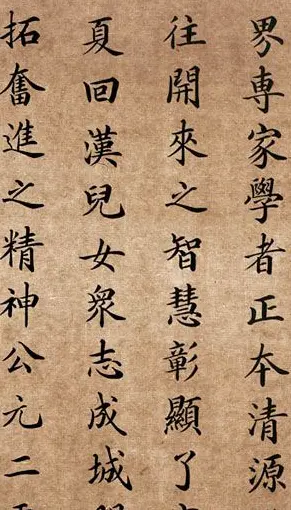 界専家學者正本清源
往開來之智慧彰顯了
夏回漢兒女眾志成城
拓奮進之精神公元二